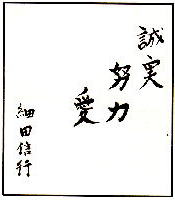 誠実
努力
愛
細田信行